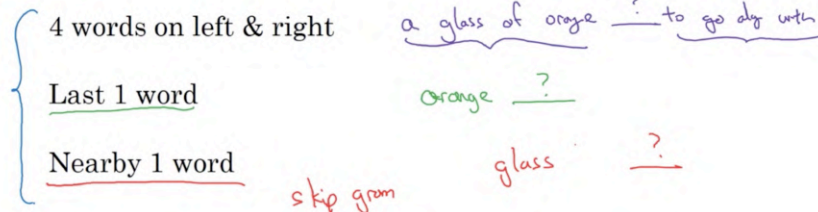 4 words on left & right a glass of orange ? to go alg with
Last 1 word orange ?
Nearby 1 word glass ?
skip gram